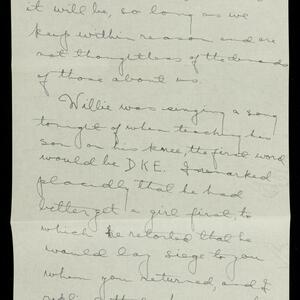 it will be, so long as we
keep within reason and are
not thoughtless of the demands
of those about us.
Willie was singing a song
tonight of when teaching his
son on his knee, the first word
would be DKE. I remarked
placidly that he had
better get a girl first, to
which he retorted that he
would lay siege to you
when you returned, and I